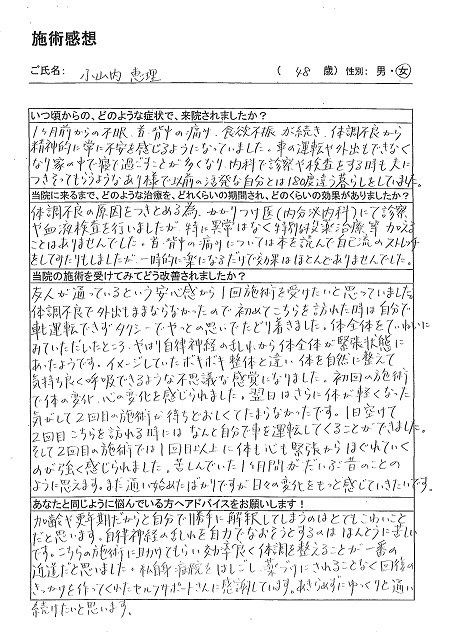 施術感想
ご氏名: 小山内 恵理 ( 48 歳) 性別: 男・女
いつ頃からの、どのような症状で、来院されましたか?
1ヶ月前からの不眠、首・背中の痛み、食欲不振が続き、体調不良から
精神的に常に不安を感じるようになっていました。車の運転や外出もできなく
なり家の中で寝て過ごすことが多くなり、内科で診察や検査をする時も夫に
つきそってもらうようなあり様で以前の活発な自分とは180度違う暮らしをしていました。
当院に来るまで、どのような治療を、どれくらいの期間され、どのくらいの効果がありましたか?
体調不良の原因をつきとめる為、かかりつけ医(内分泌内科)にて診察
や血液検査を行いましたが、特に異常はなく特別な投薬治療等行う
ことはありませんでした。首・背中の痛みについては本を読んで自己流のストレッチ
をしてみたりもしましたが、一時的に楽になるだけで効果はほとんどありませんでした。
当院の施術を受けてみてどう改善されましたか?
友人が通っているという安心感から1回施術を受けたいと思っていました。
体調不良で外出もままならなかったので初めてこちらを訪れた時は自分で
車も運転できずタクシーでやっとの思いでたどり着きました。体全体をていねいに
みていただいたところ、やはり自律神経の乱れから体全体が緊張状態に
あったようです。イメージしていたボキボキ整体と違い、体を自然に整えて
気持ち良く呼吸できるような不思議な感覚になりました。初回の施術
で体の変化、心の変化を感じられました。翌日はさらに体が軽くなった
気がして2回目の施術が待ちどおしくてたまらなかったです。1日空けて
2回目こちらを訪れる時にはなんと自分で車を運転してくることができました。
そして2回目の施術では1回目以上に体も心も緊張からほぐれていく
のが強く感じられました。苦しんでいた1ヶ月間がだいぶ昔のことの
ように思えます。まだ通い始めたばかりですが日々の変化をもっと感じていきたいです。
あなたと同じように悩んでいる方へアドバイスをお願いします!
加齢や更年期だからと自分で勝手に解釈してしまうのはとてもこわいこと
だと思います。自律神経の乱れを自力でなおそうとするのはほんとうに苦しい
です。こちらの施術に助けてもらい効率良く体調を整えることが一番の
近道だと思いました。私自身病院をはしごし、薬づけにされることなく回復の
きっかけを作ってくれたセルフサポートさんに感謝しています。あきらめずにゆっくりと通い
続けたいと思います。